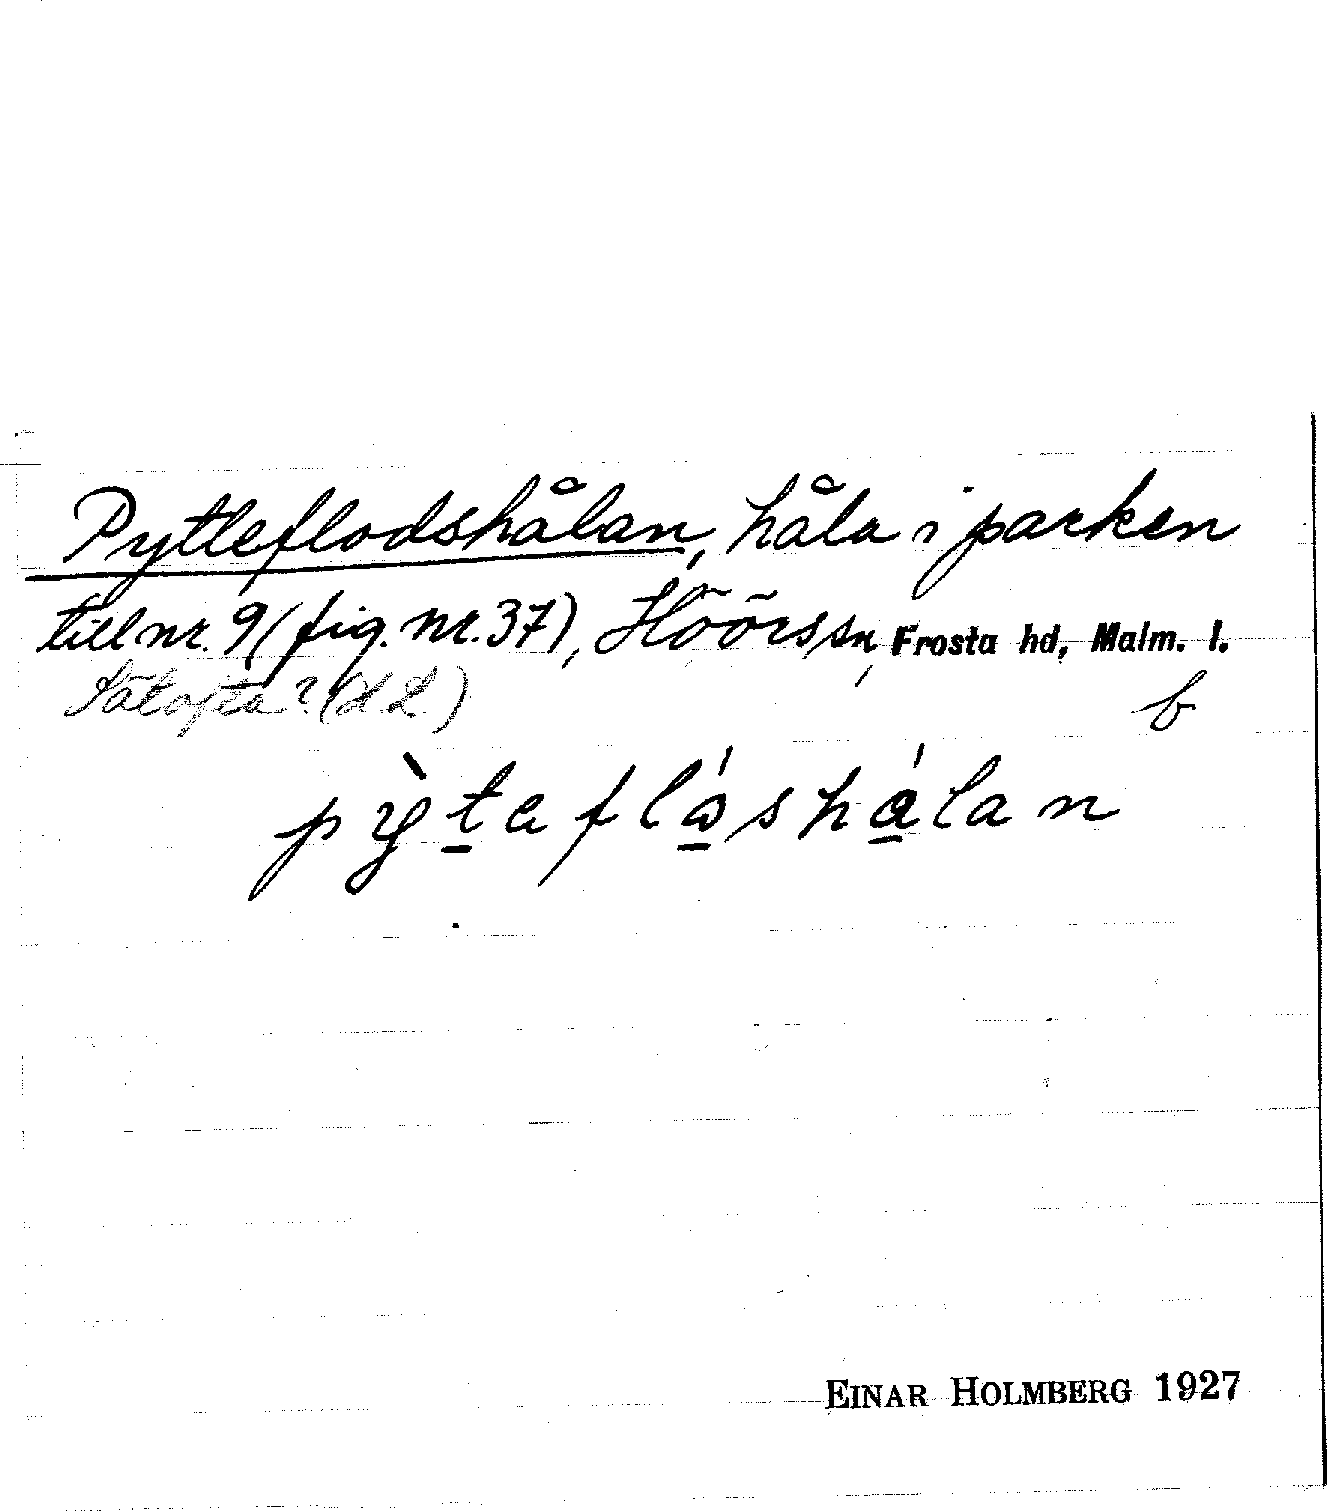 Pytteflodshålan, håla i parken
till nr. 9 (fig. nr. 37), Höörs sn, Frosta hd, Malm. l.
Sätofta? (L. L.)
b
pỳtaflåshålan
EINAR HOLMBERG 1927